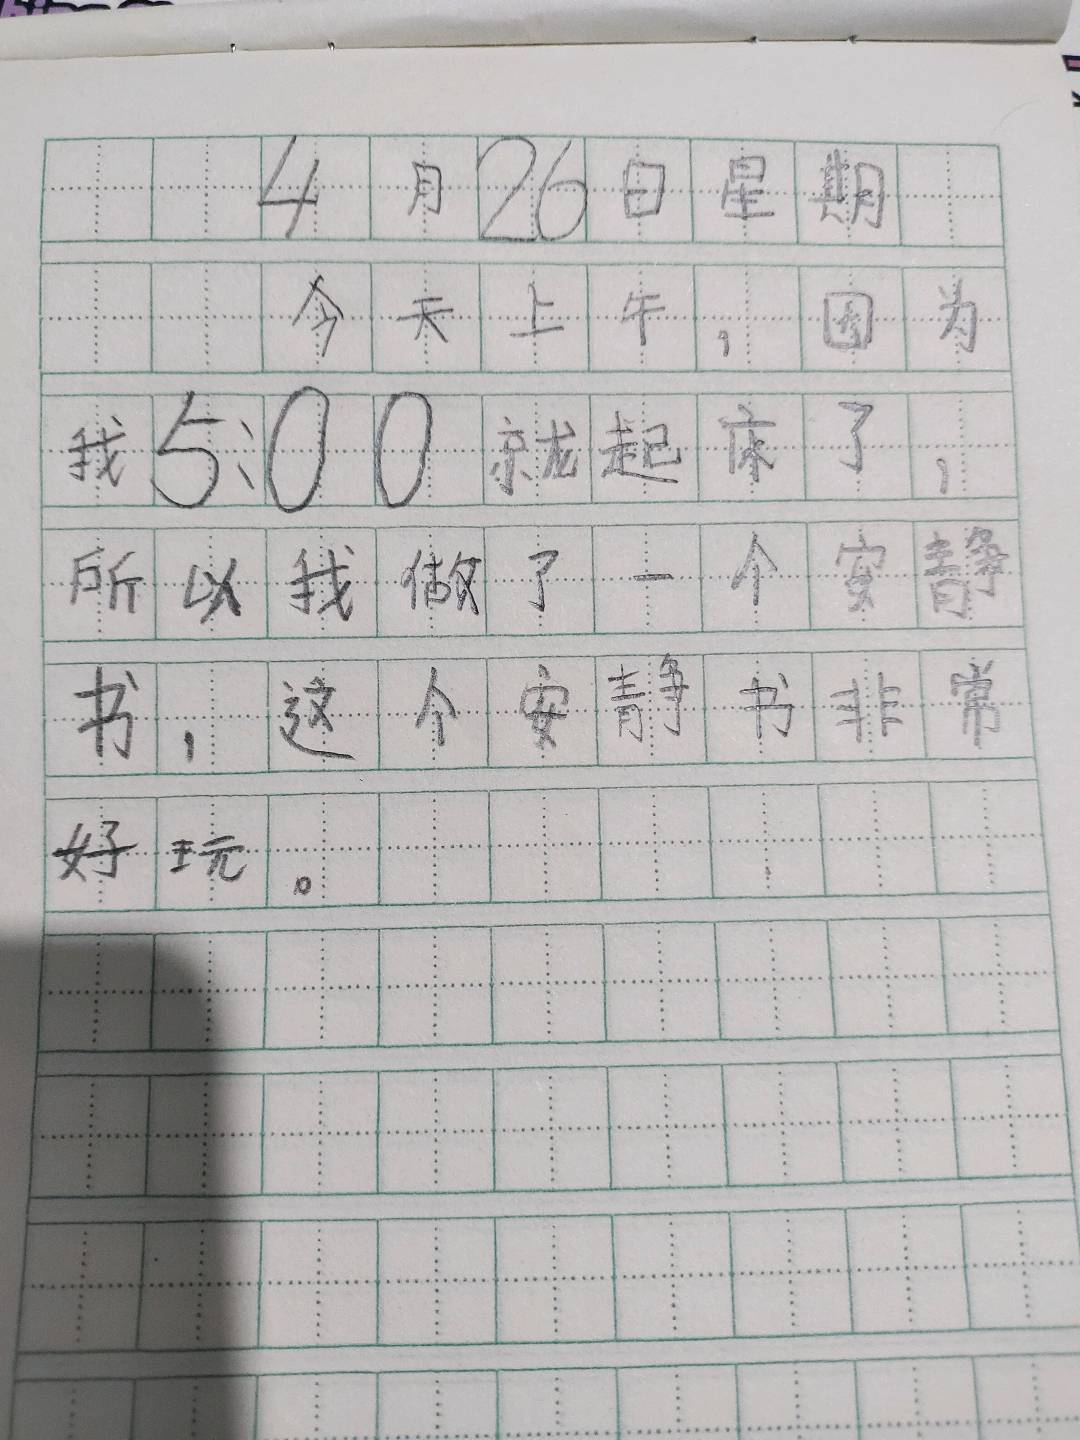 4月26日星期
今天上午，因为
我5:00就起床了，
所以我做了一个安静
书，这个安静书非常
好玩。